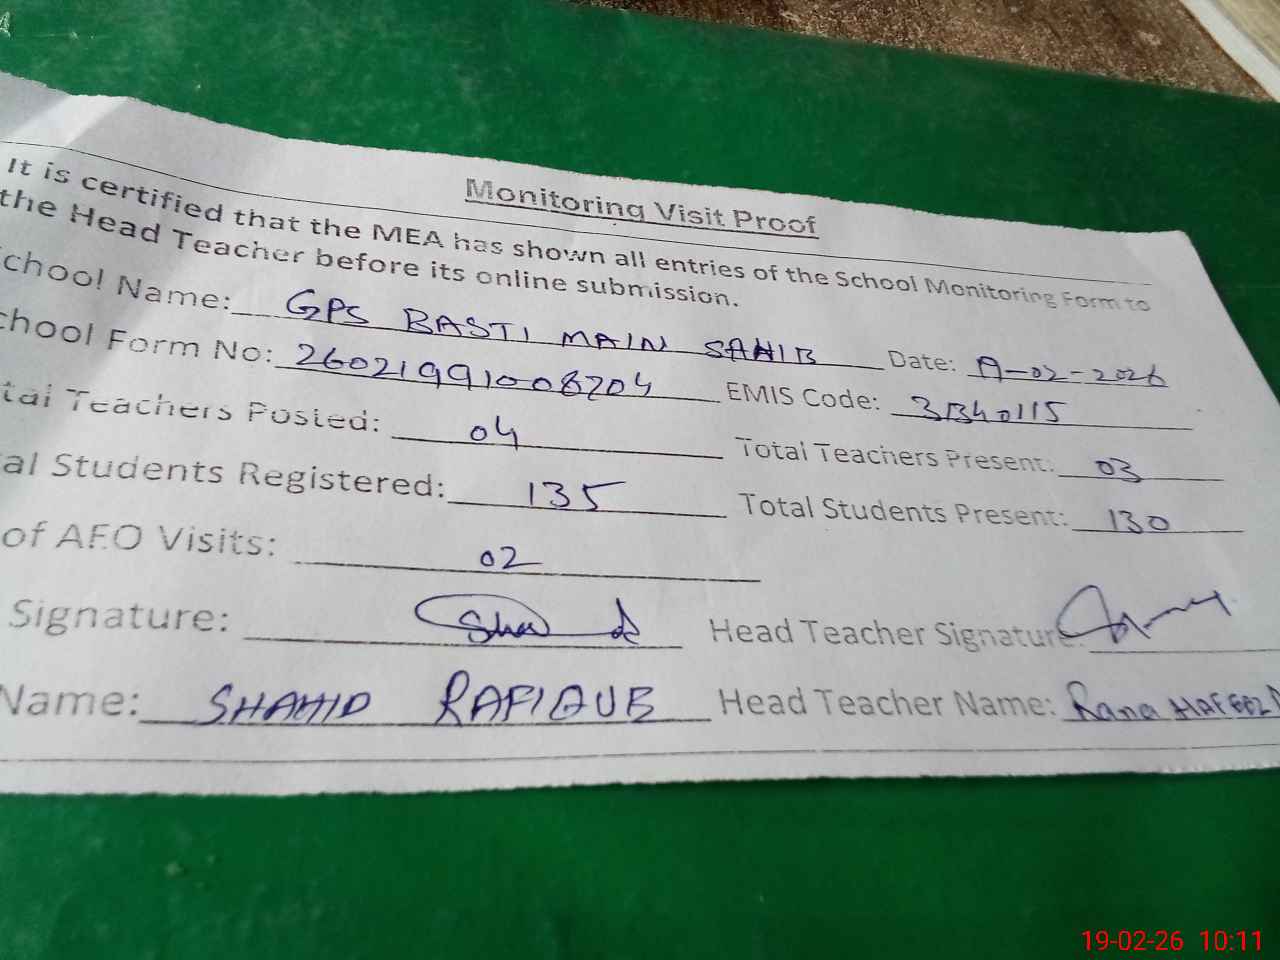 Monitoring Visit Proof
It is certified that the MEA has shown all entries of the School Monitoring Form to
the Head Teacher before its online submission.
chool Name: GPS BASTI MAIN SAHIB Date: 19-02-2026
chool Form No: 260219991008204 EMIS Code: 31340115
tal Teachers Posted: 04 Total Teachers Present: 03
al Students Registered: 135 Total Students Present: 130
of AEO Visits: 02
Signature: Head Teacher Signature:
Name: SHAHID RAFIQUE Head Teacher Name: Rana HAFEEZ
19-02-26 10:11